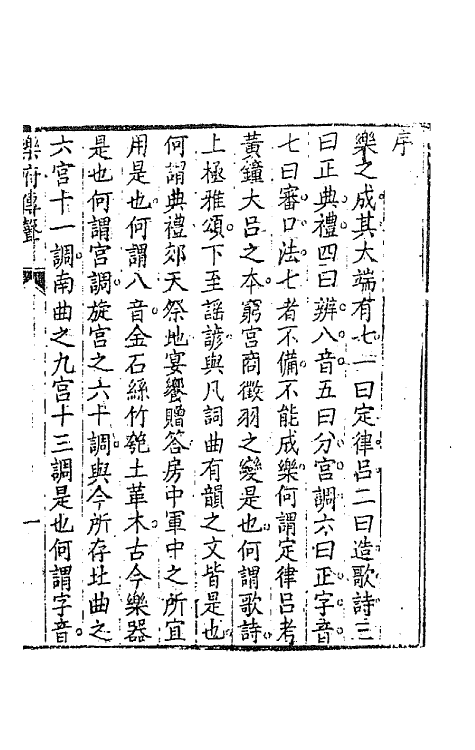 序
樂之成其大端有七一曰定律呂二曰造歌詩三
曰正典禮四曰辨八音五曰分宮調六曰正字音
七曰審口法七者不備不能成樂何謂定律呂考
黃鐘大呂之本窮宮商徵羽之變是也何謂歌詩
上極雅頌下至謡諺與凡詞曲有韻之文皆是也
何謂典禮郊天祭地宴饗贈答房中軍中之所宜
用是也何謂八音金石絲竹匏土革木古今樂器
是也何謂宮調旋宮之六十調與今所存北曲之
六宮十一調南曲之九宮十三調是也何謂字音
樂府傳聲
一